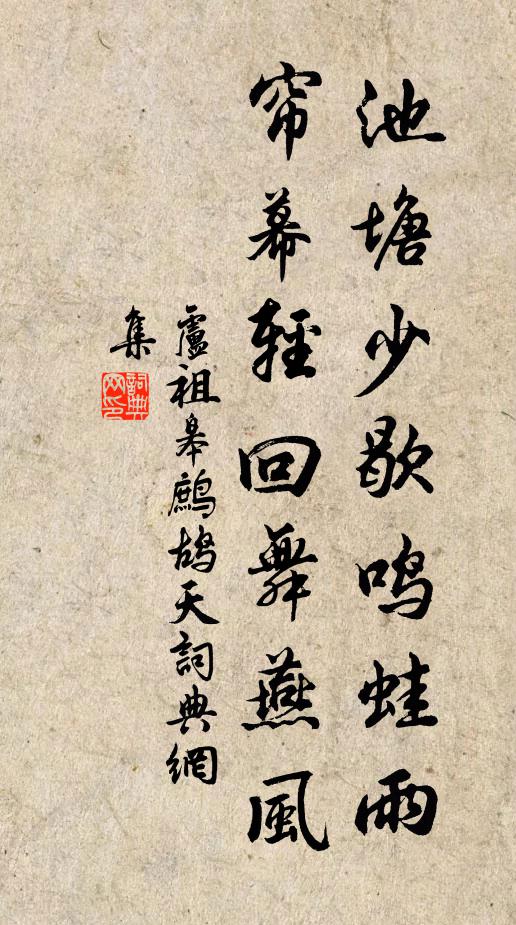 池塘少歇鸣蛙雨
帘幕輕回舞燕風
盧祖皋鷓鴣天詞典網
集
詞典網印